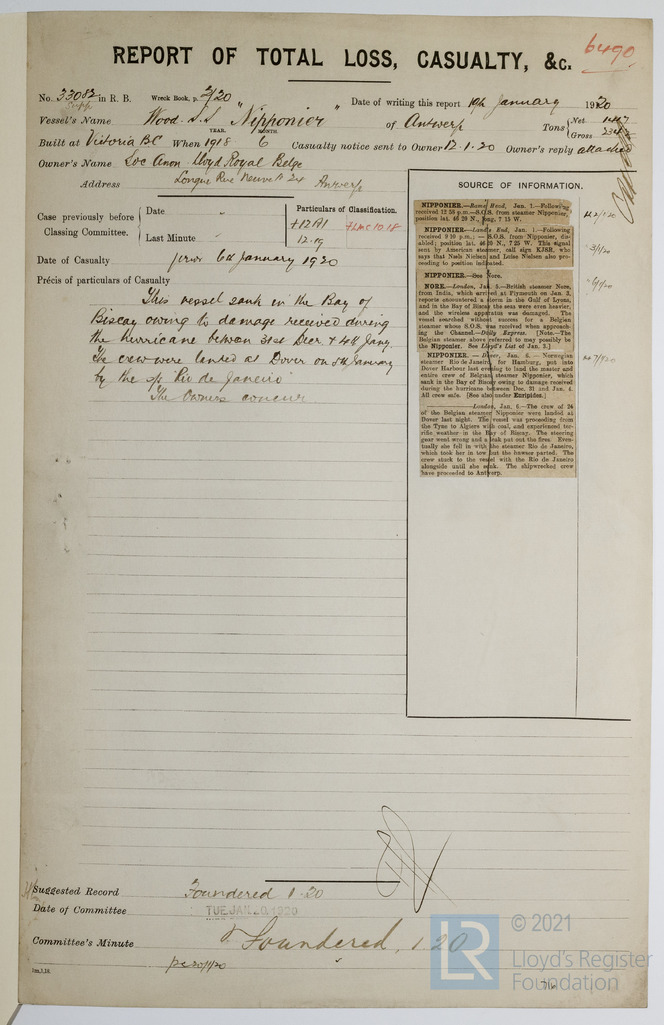 6490
REPORT OF TOTAL LOSS, CASUALTY, &c.
No. 33082 in R. B. Wreck Book, p. 2/20 Date of writing this report 19th January 1920
Supp
Vessel's Name Wood. S.S "Nipponier" of Antwerp Tons Net Gross
YEAR. MONTH.
Built at Victoria BC When 1918 6 Casualty notice sent to Owner 12.1.20 Owner's reply attached
Owner's Name Soc Anon Lloyd Royal Belge
Address Longue Rue Neuve Antwerp
Case previously before Classing Committee. Date "
Last Minute "
Particulars of Classification.
+12A1 +LMC 10.18
12.19
Date of Casualty prior 6th January 1920
Précis of particulars of Casualty
This vessel sank in the Bay of
Biscay owing to damage received during
the hurricane between 31st Decr. & 4th Jany
The crew were landed at Dover on 5th January
by the s/s 'Rio de Janeiro'
The Owners concur
SOURCE OF INFORMATION.
NIPPONIER.—Rame Head, Jan. 1.—Following
received 12 58 p.m.—S.O.S. from steamer Nipponier,
position lat. 46 20 N., long. 7 15 W.
NIPPONIER.—Land's End, Jan. 1.—Following
received 9 10 p.m.:—S.O.S. from Nipponier, dis-
abled; position lat. 46 20 N., 7 25 W. This signal
sent by American steamer, call sign KJSR, who
says that Niels Nielsen and Luise Nielsen also pro-
ceeding to position indicated.
NIPPONIER.—See Nore.
NORE.—London, Jan. 5.—British steamer Nore,
from India, which arrived at Plymouth on Jan. 3,
reports encountered a storm in the Gulf of Lyons,
and in the Bay of Biscay the seas were even heavier,
and the wireless apparatus was damaged. The
vessel searched without success for a Belgian
steamer whose S.O.S. was received when approach-
ing the Channel.—Daily Express. [Note.—The
Belgian steamer above referred to may possibly be
the Nipponier. See Lloyd's List of Jan. 3.]
NIPPONIER.—Dover, Jan. 6.—Norwegian
steamer Rio de Janeiro, for Hamburg, put into
Dover Harbour last evening to land the master and
entire crew of Belgian steamer Nipponier, which
sank in the Bay of Biscay owing to damage received
during the hurricane between Dec. 31 and Jan. 4.
All crew safe. (See also under Euripides.)
London, Jan. 6.—The crew of 24
of the Belgian steamer Nipponier were landed at
Dover last night. The vessel was proceeding from
the Tyne to Algiers with coal, and experienced ter-
rific weather in the Bay of Biscay. The steering
gear went wrong and a leak put out the fires. Even-
tually she fell in with the steamer Rio de Janeiro,
which took her in tow but the hawser parted. The
crew stuck to the vessel with the Rio de Janeiro
alongside until she sank. The shipwrecked crew
have proceeded to Antwerp.
Suggested Record Foundered 1.20
Date of Committee TUE. JAN. 20. 1920
Committee's Minute Foundered, 1.20
1m,1,18.
LR
© 2021
Lloyd's Register
Foundation